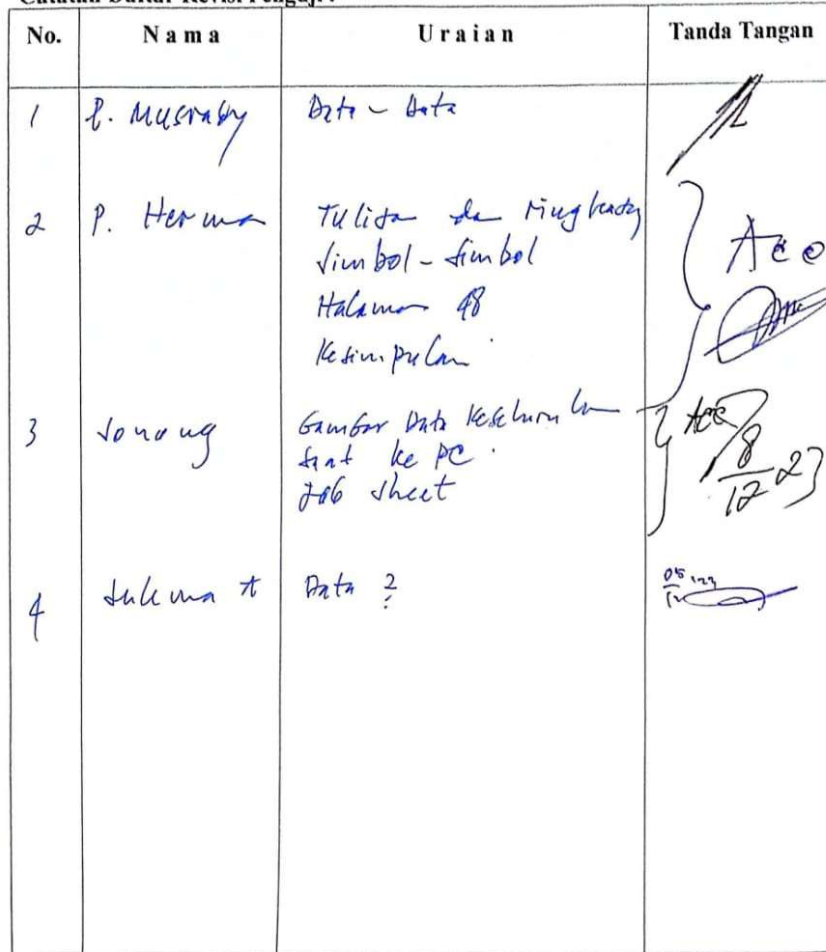 Catatan Daftar Revisi Penguji :
No. Nama Uraian Tanda Tangan
1 P. Musraby Data - Data
2 P. Herman Tulisan dan
Simbol - simbol Acc
Halaman 48
Kesimpulan
3 Sonong Gambar Data Keseluruhan Acc
ke PC. 8/12 23
Job sheet
4 Sukma A Data ?